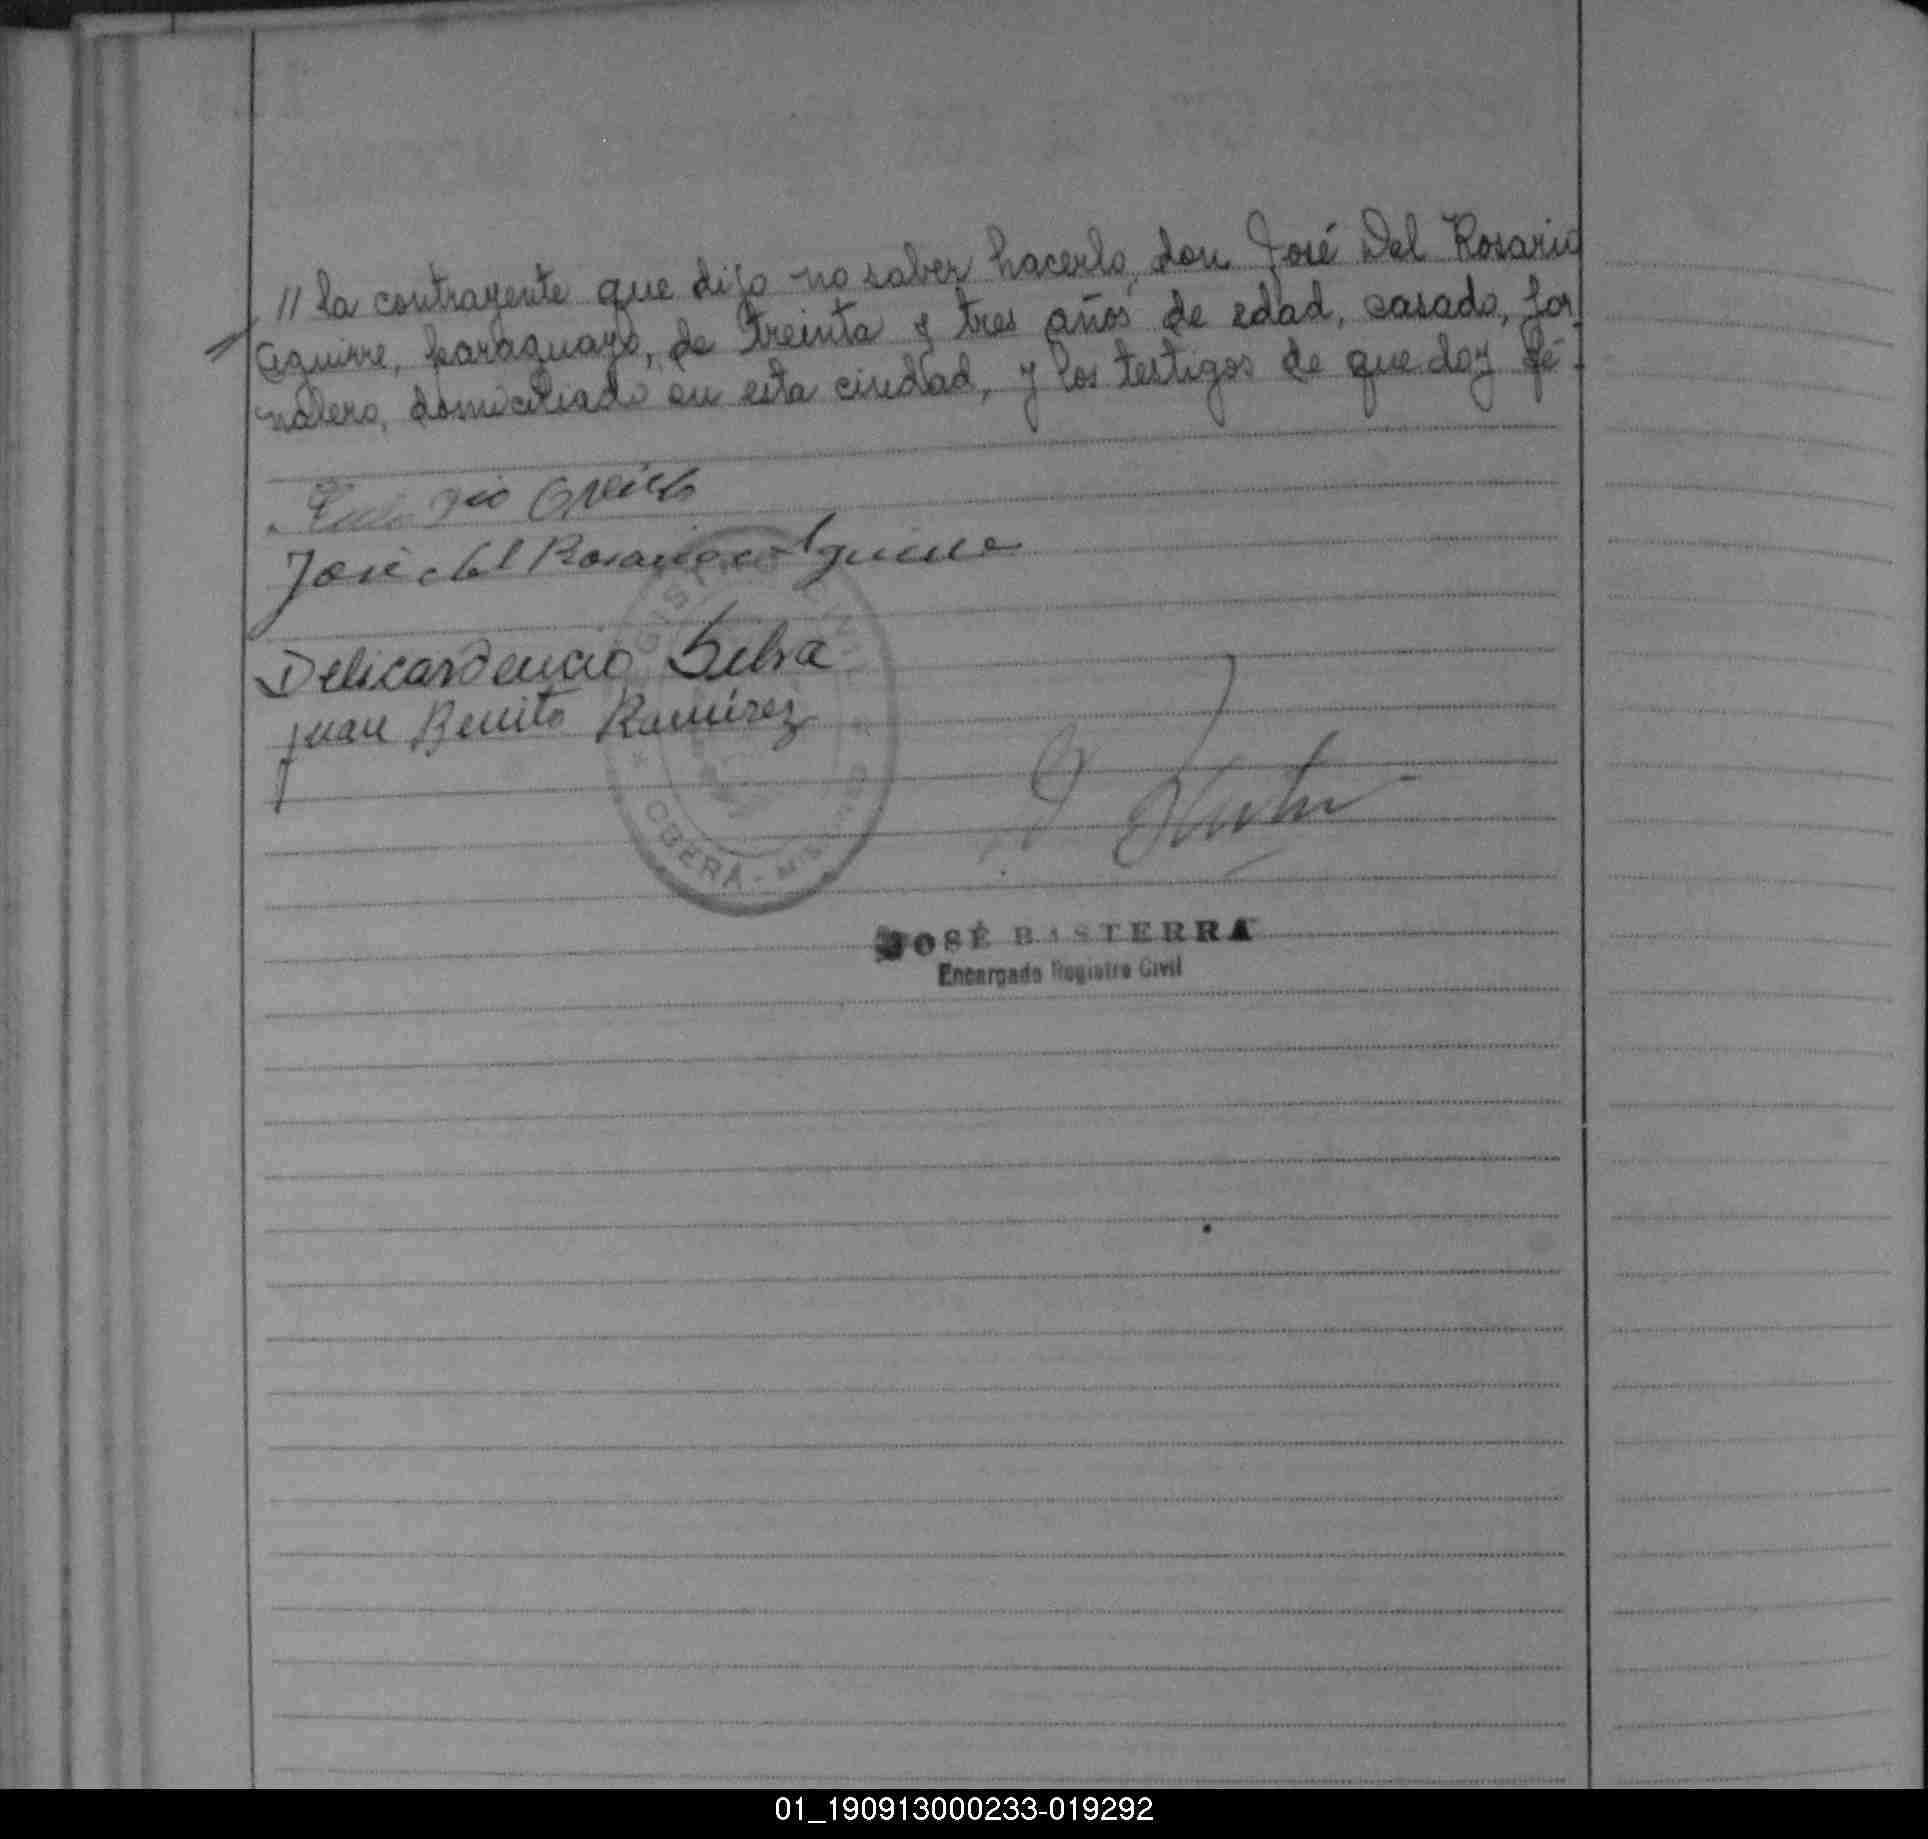 // la contrayente que dijo no saber hacerlo, don José Del Rosario
Aguirre, paraguayo, de treinta y tres años de edad, casado, jor
nalero, domiciliado en esta ciudad, y los testigos de que doy fé -
José del Rosario Aguirre
Delicardencio Silva
Juan Benito Ramírez
REGISTRO CIVIL
* OBERÁ - MISIONES *
JOSÉ BASTERRA
Encargado Registro Civil
01_190913000233-019292